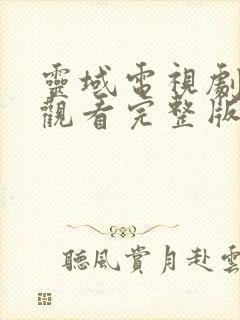 靈域電視劇
觀看完整版
聽風賞月赴雲